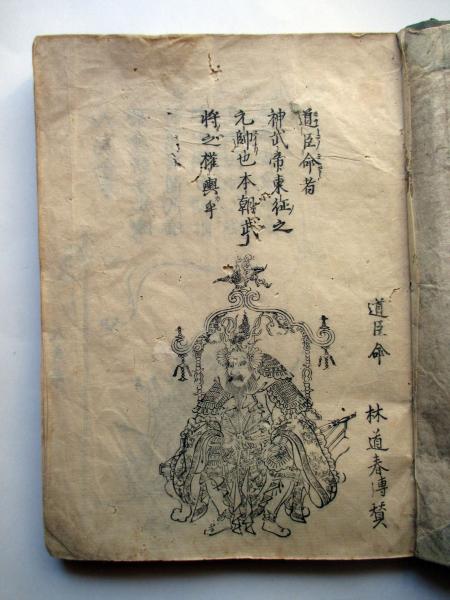 道臣命　林道春傳賛
道臣命者
神武帝東征之
元帥也本朝武
将之權輿乎